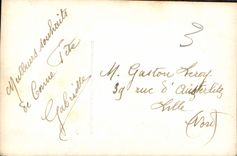 Meilleurs souhaits
de bonne Fête
Gabrielle
3
M. Gaston Leroy
39 rue d'Austerlitz
Lille
(Nord)